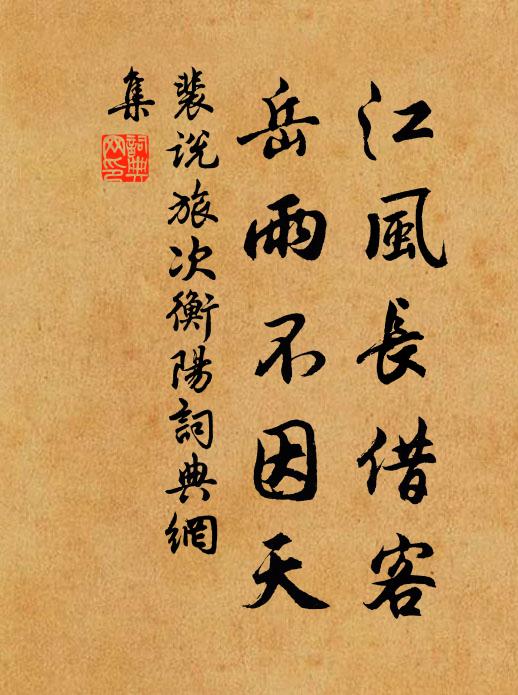 江風長借客
岳雨不因天
裴說旅次衡陽詞典網
集
詞典
网印